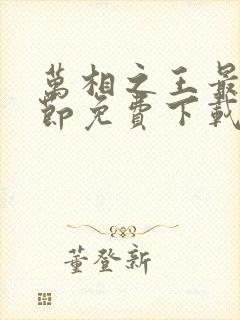 萬相之王最
節免費下載
董登新